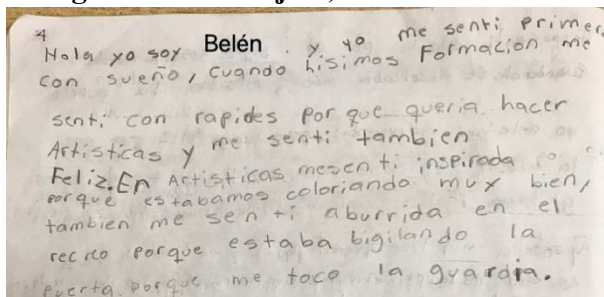 4
Hola yo soy Belén. y yo me senti primer
con sueño, cuando hisimos Formacion me
senti con rapides por que queria hacer
Artisticas y me senti tambien
Feliz. En Artisticas mesenti inspirada
porque estabamos coloriando muy bien,
tambien me senti aburrida en el
recreo porque estaba bigilando la
puerta porque me toco la guardia.